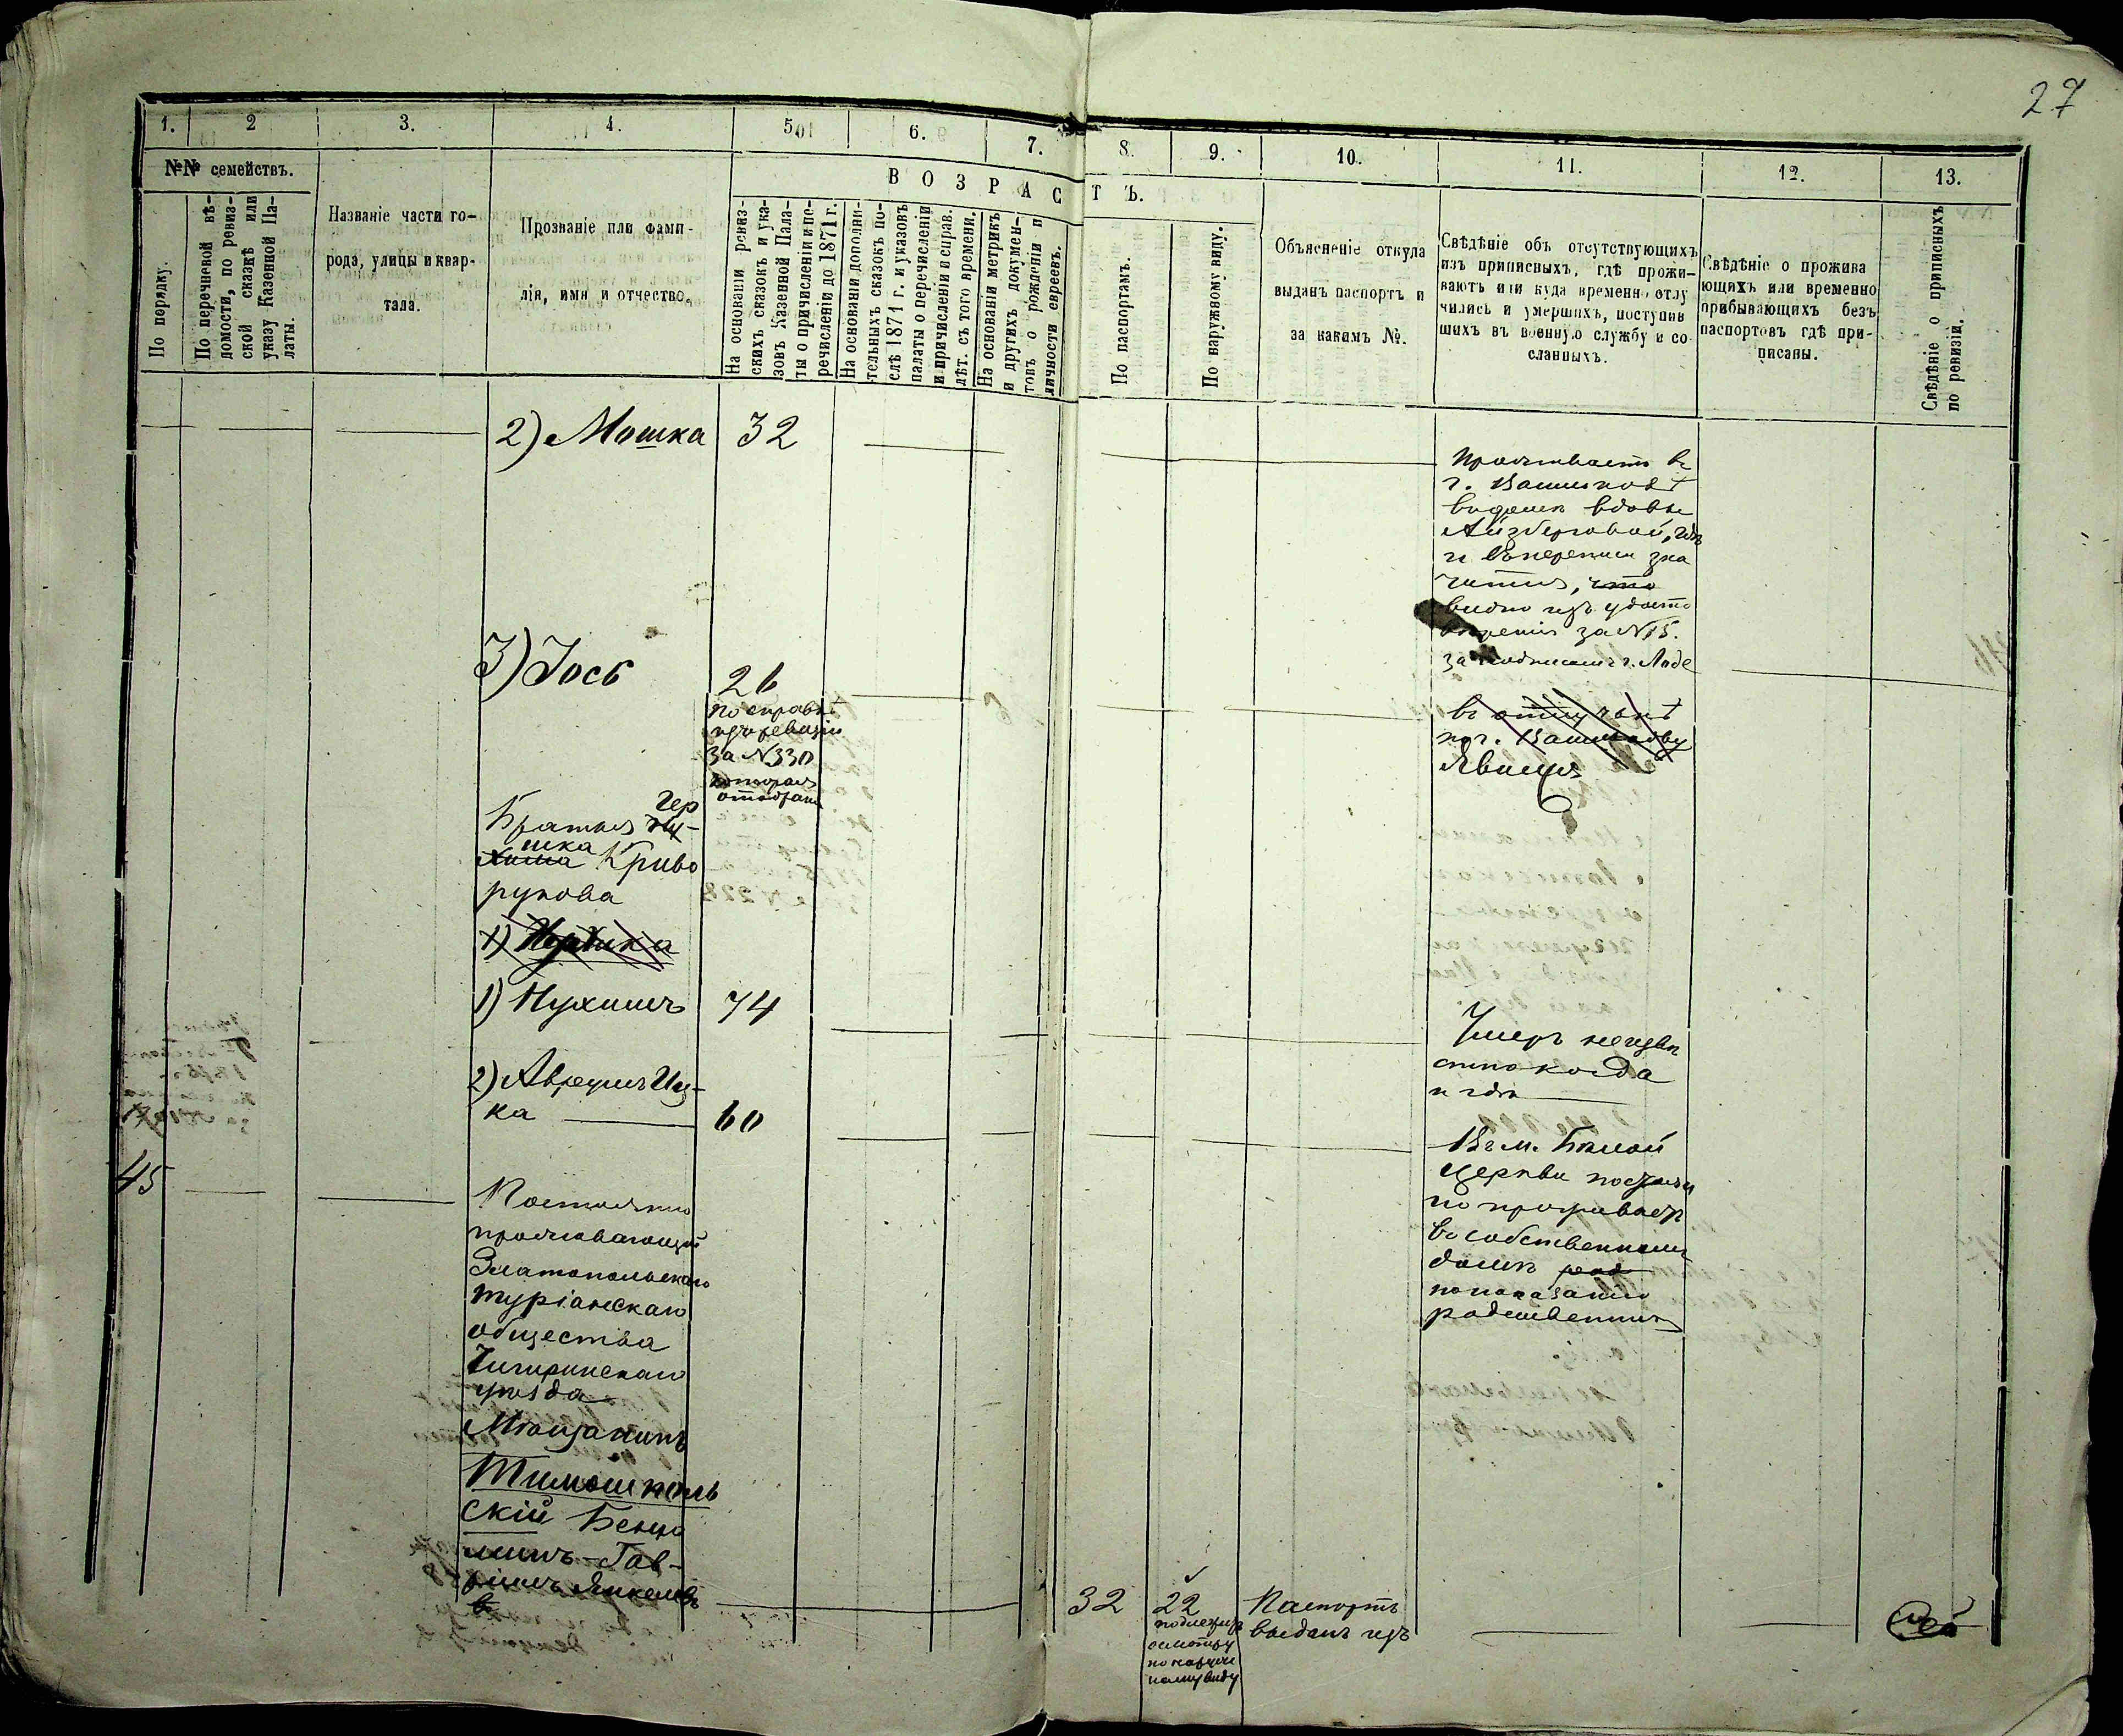 27
1. 2 3. 4. 5 6. 7. 8. 9. 10. 11. 12. 13.
№№ семействъ.
По порядку.
По перечневой вѣ-
домости, по ревиз-
ской сказкѣ или
указу Казенной Па-
латы.
Названіе части го-
рода, улицы и квар-
тала.
Прозваніе или фами-
лія, имя и отчество.
ВОЗРАСТЪ.
На основаніи ревиз-
скихъ сказокъ и ука-
зовъ Казенной Пала-
ты о причисленіи и пе-
речисленіи до 1871 г.
На основаніи дополни-
тельныхъ сказокъ по-
слѣ 1871 г. и указовъ
палаты о перечисленіи
и причисленіи и справ.
лѣт. съ того времени.
На основаніи метрикъ
и другихъ докумен-
товъ о рожденіи и
личности евреевъ.
По паспортамъ.
По наружному виду.
Объясненіе откуда
выданъ паспортъ и
за какимъ №.
Свѣдѣніе объ отсутствующихъ
изъ приписныхъ, гдѣ прожи-
ваютъ или куда временно отлу
чились и умершихъ, поступив
шихъ въ военную службу и со
сланныхъ.
Свѣдѣніе о прожива
ющихъ или временно
прибывающихъ безъ
паспортовъ гдѣ при-
писаны.
Свѣдѣніе о приписныхъ
по ревизіи.
2) Мошка 32
Проживаетъ въ
г. Васильковѣ
въ домѣ вдовы
Айзберговой, гдѣ
и въ переписи зна
чится, что
видно изъ удосто
вѣренія за №15.
за подписомъ г.
3) Іось 26
по справкѣ
изъ ревизіи
за №330
которая
отобрана
въ отлучкѣ
по г. Василькову
Явился
Братья Гер
шка Криво
рукова
1) Нухимъ 74
Умеръ неизвѣ
стно когда
и гдѣ
2) Аврумъ Иц-
ка 60
Въ м. Бѣлой
Церкви постоян
но проживаетъ
въ собственномъ
домѣ
по показанію
родственник
45
Постоянно
проживающій
Златопольскаго
Туріанскаго
общества
Чигиринскаго
уѣзда
Мѣщанинъ
Тимошполь
скій Бенцо
Гав-
ріилъ Янкелев
32 22
подлежитъ
осмотру
по наруж
ному виду
Паспортъ
выданъ изъ